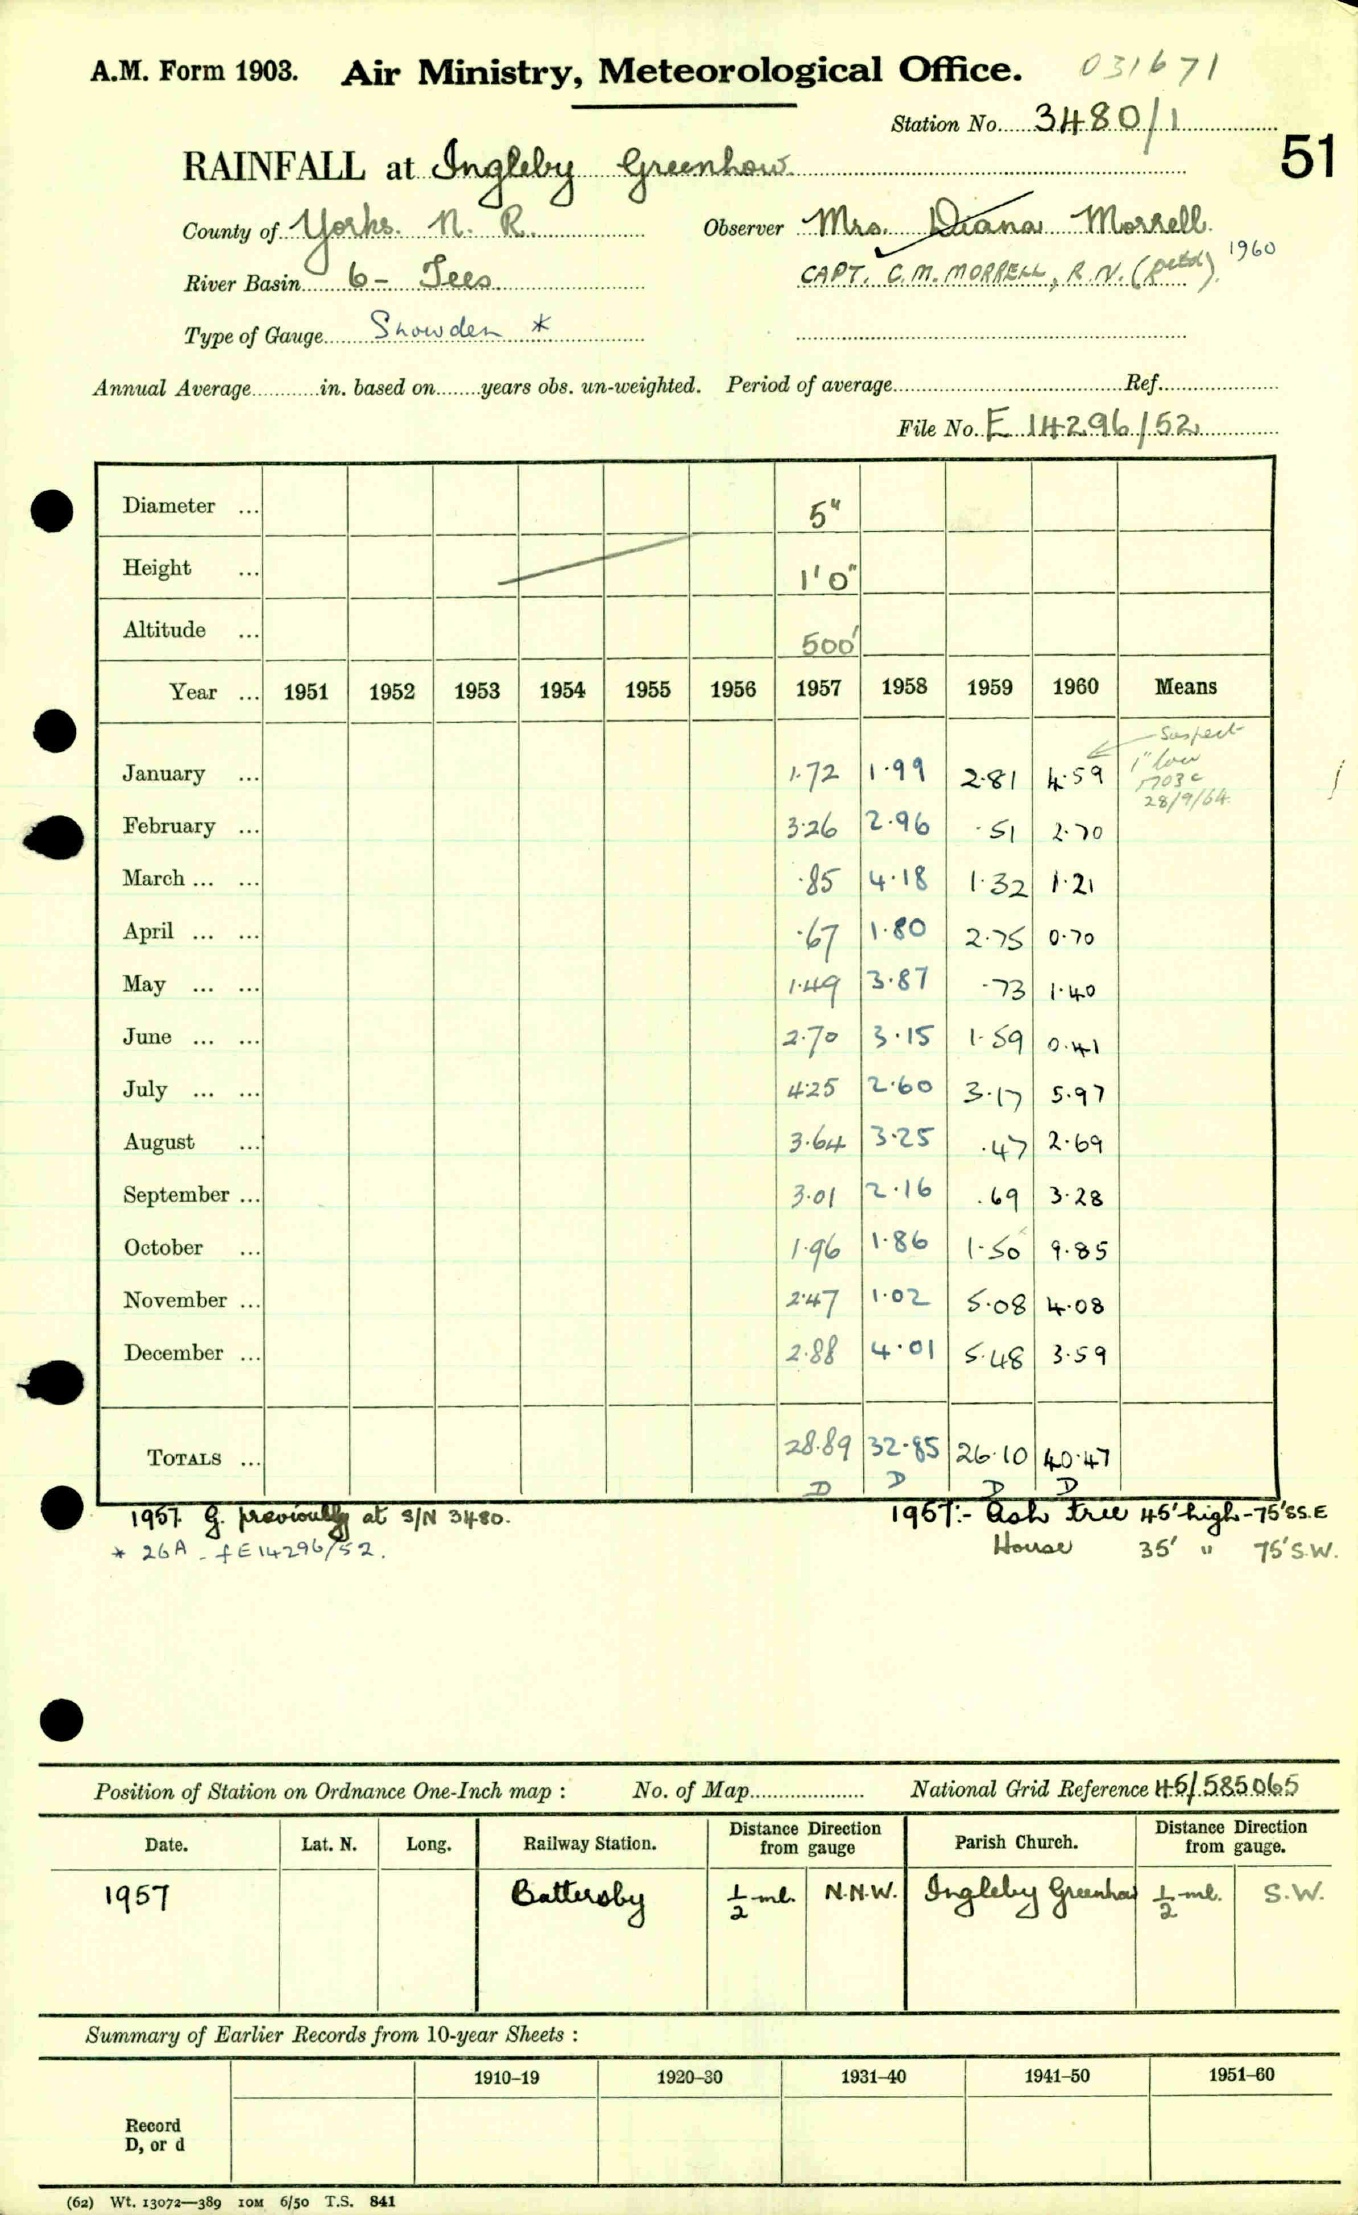 A.M. Form 1903. Air Ministry, Meteorological Office. 031671
Station No. 3480/1
51
RAINFALL at Ingleby Greenhow
County of Yorks. N. R. Observer Mrs. Diana Morrell.
River Basin 6 - Tees CAPT. C.M. MORRELL, R.N. (retd). 1960
Type of Gauge Snowden *
Annual Average in. based on years obs. un-weighted. Period of average Ref.
File No. E 14296/52
Diameter ... 5"
Height ... 1' 0"
Altitude ... 500'
Year ... 1951 1952 1953 1954 1955 1956 1957 1958 1959 1960 Means
Suspect
1" low
28/9/64
January ... 1.72 1.99 2.81 4.59
February ... 3.26 2.96 .51 2.70
March ... ... .85 4.18 1.32 1.21
April ... ... .67 1.80 2.75 0.70
May ... ... 1.49 3.87 .73 1.40
June ... ... 2.70 3.15 1.59 0.41
July ... ... 4.25 2.60 3.17 5.97
August ... 3.64 3.25 .47 2.69
September ... 3.01 2.16 .69 3.28
October ... 1.96 1.86 1.50 9.85
November ... 2.47 1.02 5.08 4.08
December ... 2.88 4.01 5.48 3.59
TOTALS ... 28.89 32.85 26.10 40.47
D D D D
1957 G. previously at S/N 3480. 1957:- Ash tree 45' high - 75' SS.E
* 26A - f E14296/52. House 35' " 75' S.W.
Position of Station on Ordnance One-Inch map : No. of Map National Grid Reference 45/585065
Date. Lat. N. Long. Railway Station. Distance Direction from gauge Parish Church. Distance Direction from gauge.
1957 Battersby 1/2 ml. N.N.W. Ingleby Greenhow 1/2 ml. S.W.
Summary of Earlier Records from 10-year Sheets :
1910–19 1920–30 1931–40 1941–50 1951–60
Record
D, or d
(62) Wt. 13072—389 10M 6/50 T.S. 841